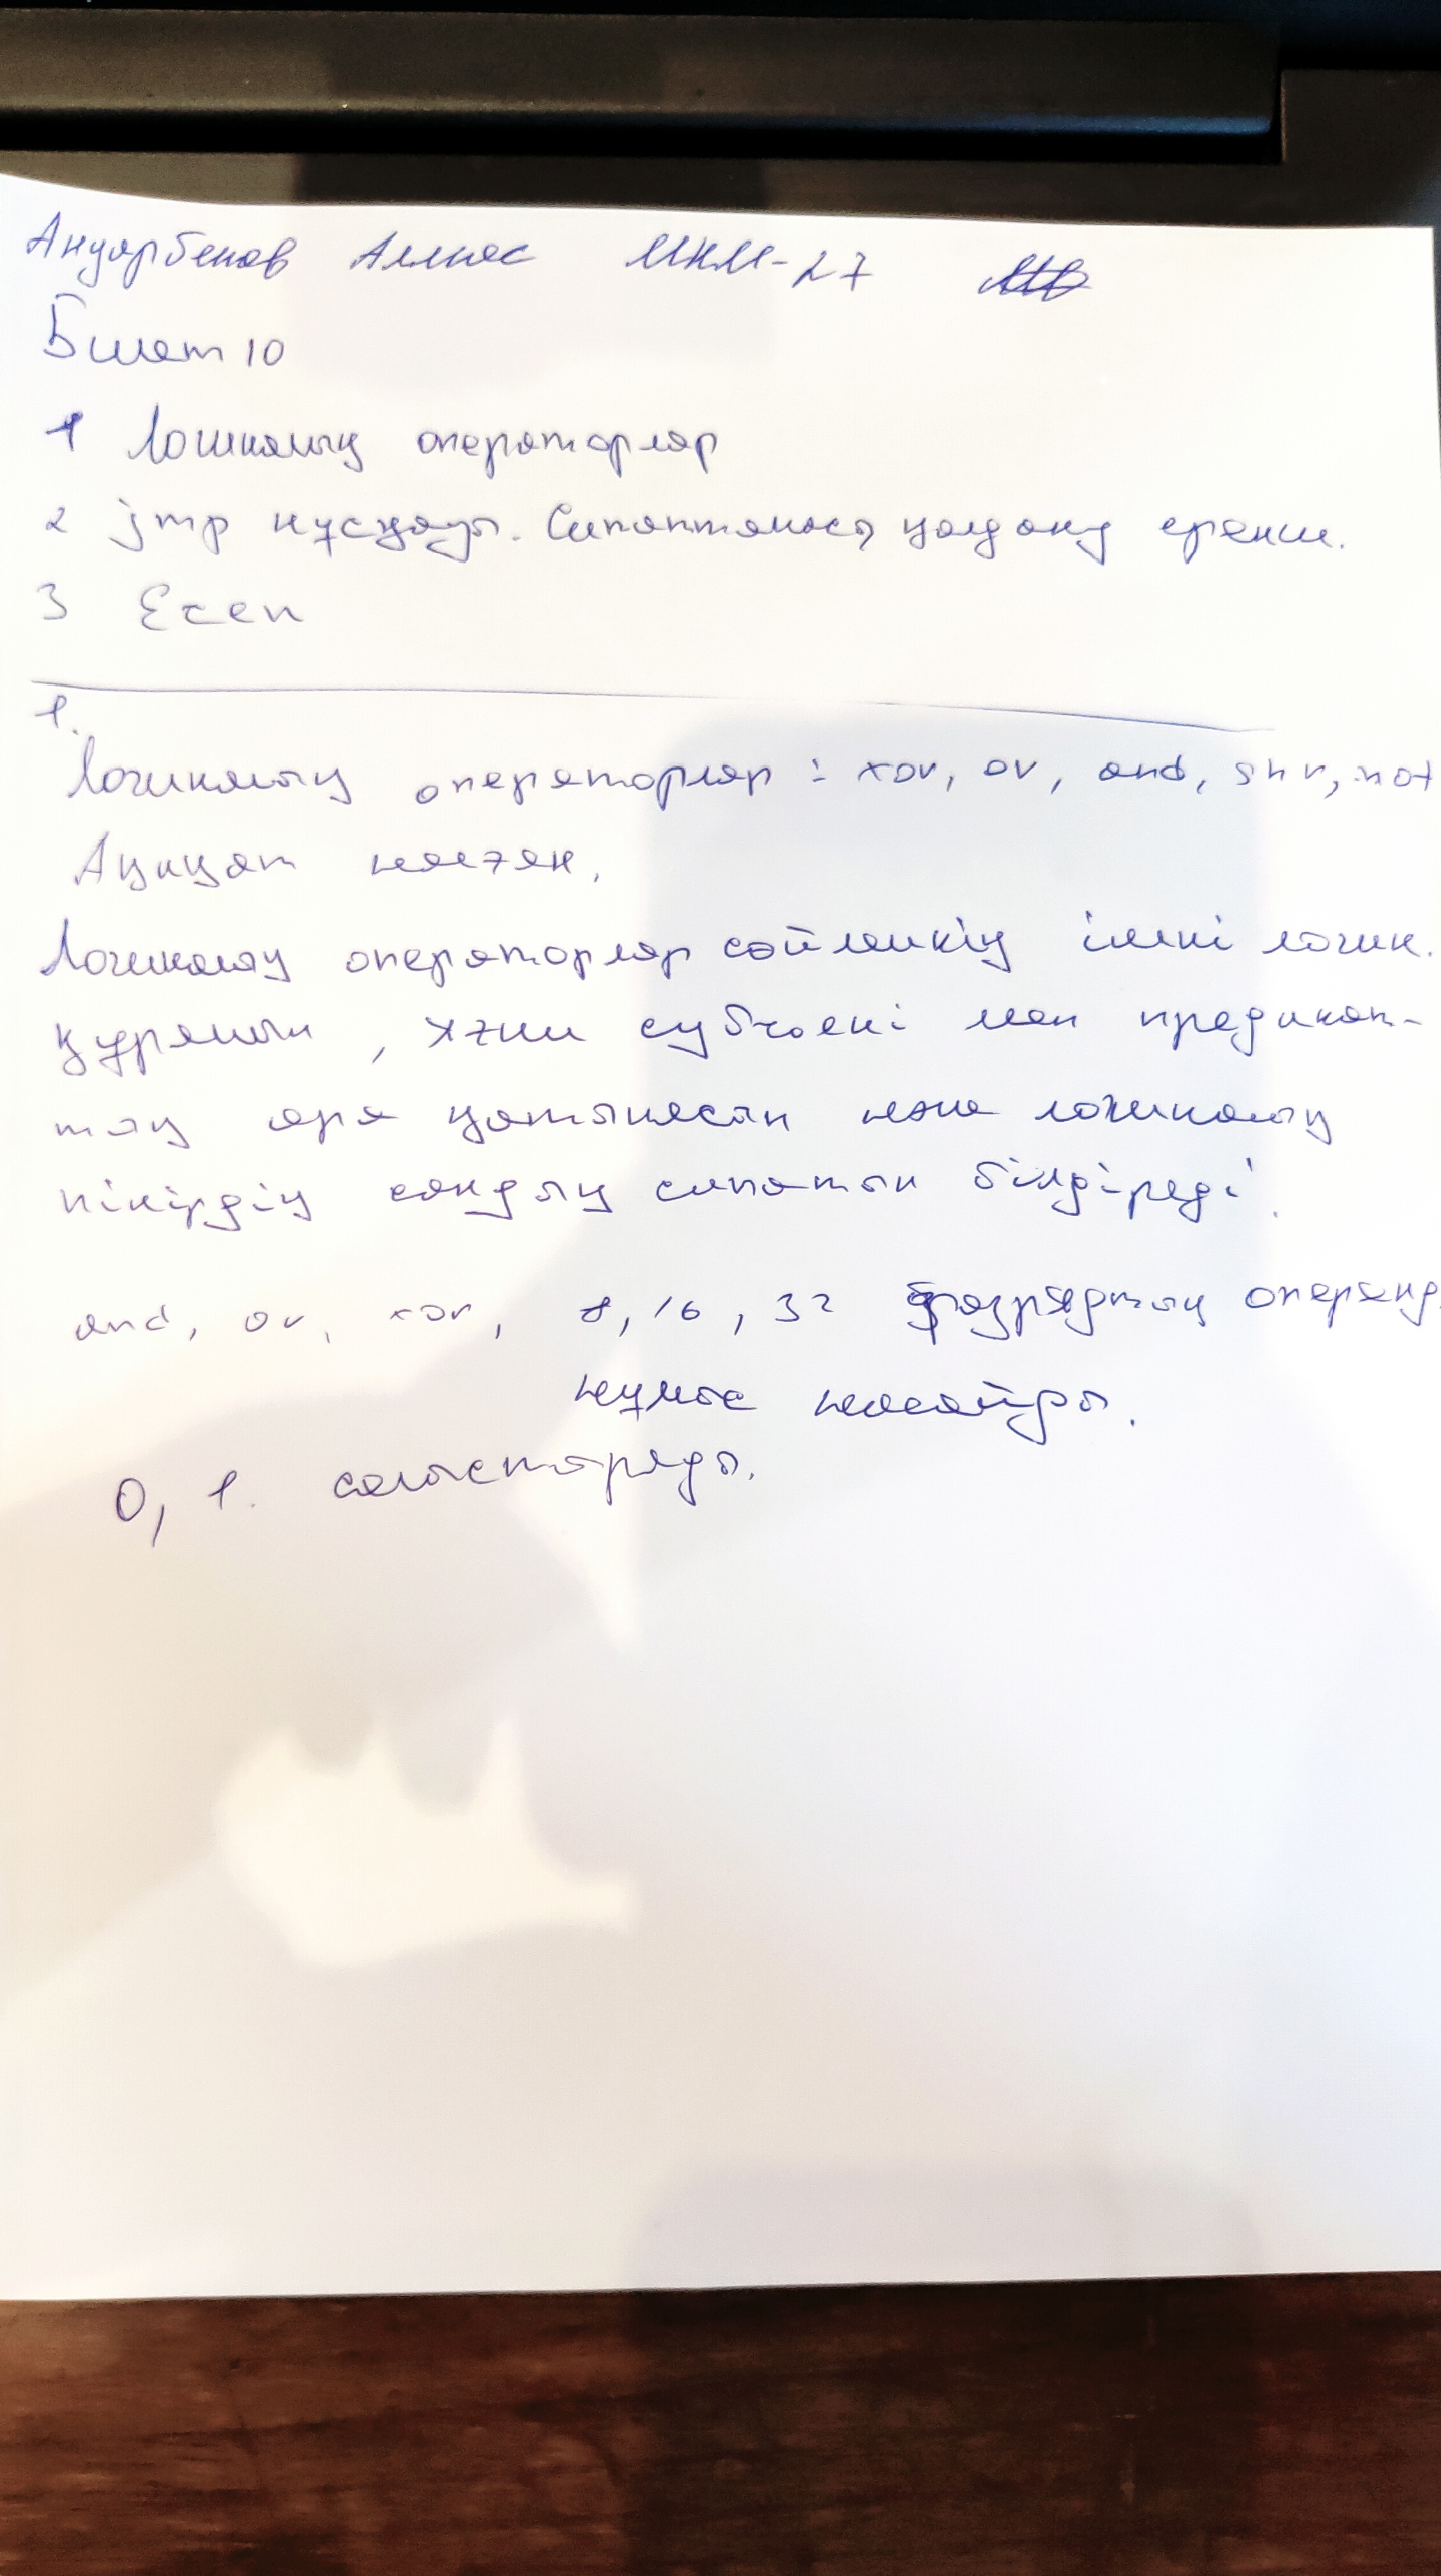 Ануарбеков Алмас МКМ-27
Билет 10
1 Логикалық операторлар
2 jmp нұсқауы. Сипаттамасы, қолдану ерекш.
3 Есеп
1.
Логикалық операторлар: xor, or, and, shr, not
Ақиқат жалған.
Логикалық операторлар сөйлемнің ішкі логик.
құрамын, яғни субъекті мен предикат-
тың ара қатынасын және логикалық
пікірдің сандық сипатын білдіреді.
and, or, xor, 8, 16, 32 разрядтық операнд.
жұмыс жасайды.
0, 1. салыстырады.